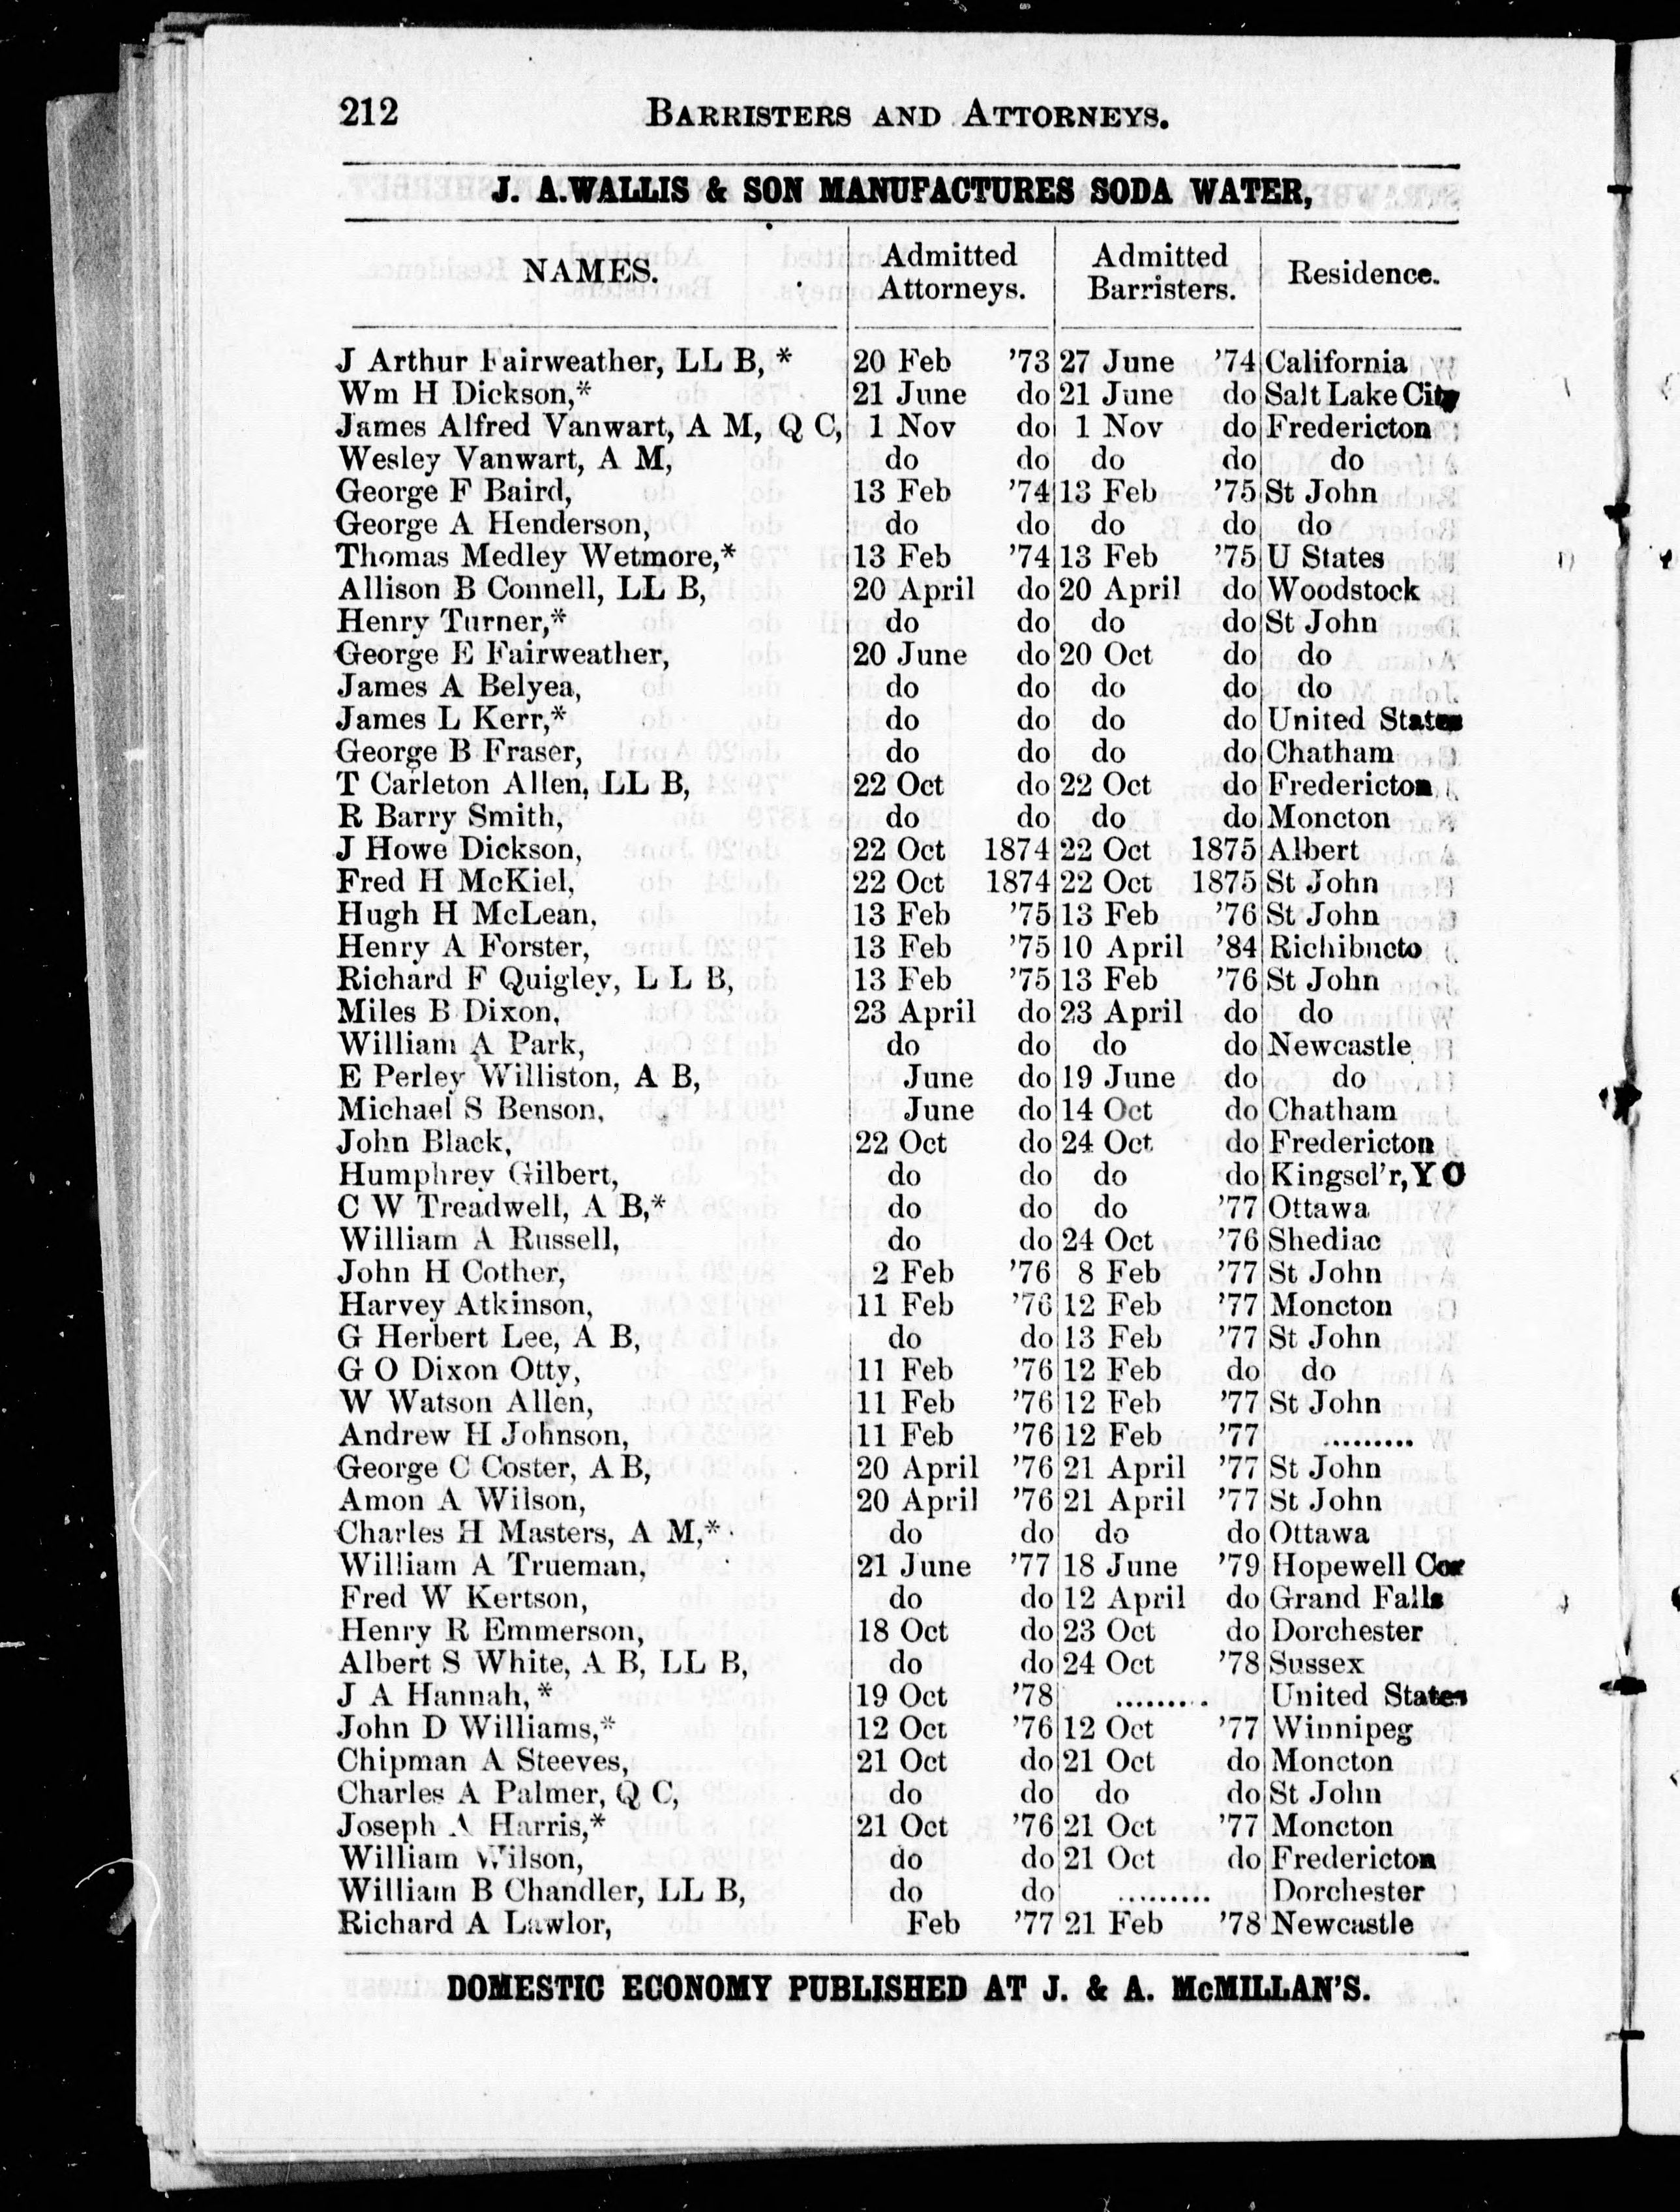 212 BARRISTERS AND ATTORNEYS.
J. A. WALLIS & SON MANUFACTURES SODA WATER,
NAMES. Admitted Attorneys. Admitted Barristers. Residence.
J Arthur Fairweather, LL B, * 20 Feb '73 27 June '74 California
Wm H Dickson,* 21 June do 21 June do Salt Lake City
James Alfred Vanwart, A M, Q C, 1 Nov do 1 Nov do Fredericton
Wesley Vanwart, A M, do do do do do
George F Baird, 13 Feb '74 13 Feb '75 St John
George A Henderson, do do do do do
Thomas Medley Wetmore,* 13 Feb '74 13 Feb '75 U States
Allison B Connell, LL B, 20 April do 20 April do Woodstock
Henry Turner,* do do do do St John
George E Fairweather, 20 June do 20 Oct do do
James A Belyea, do do do do do
James L Kerr,* do do do do United States
George B Fraser, do do do do Chatham
T Carleton Allen, LL B, 22 Oct do 22 Oct do Fredericton
R Barry Smith, do do do do Moncton
J Howe Dickson, 22 Oct 1874 22 Oct 1875 Albert
Fred H McKiel, 22 Oct 1874 22 Oct 1875 St John
Hugh H McLean, 13 Feb '75 13 Feb '76 St John
Henry A Forster, 13 Feb '75 10 April '84 Richibucto
Richard F Quigley, L L B, 13 Feb '75 13 Feb '76 St John
Miles B Dixon, 23 April do 23 April do do
William A Park, do do do do Newcastle
E Perley Williston, A B, June do 19 June do do
Michael S Benson, June do 14 Oct do Chatham
John Black, 22 Oct do 24 Oct do Fredericton
Humphrey Gilbert, do do do do Kingscl'r, Y O
C W Treadwell, A B,* do do do '77 Ottawa
William A Russell, do do 24 Oct '76 Shediac
John H Cother, 2 Feb '76 8 Feb '77 St John
Harvey Atkinson, 11 Feb '76 12 Feb '77 Moncton
G Herbert Lee, A B, do do 13 Feb '77 St John
G O Dixon Otty, 11 Feb '76 12 Feb do do
W Watson Allen, 11 Feb '76 12 Feb '77 St John
Andrew H Johnson, 11 Feb '76 12 Feb '77 .........
George C Coster, A B, 20 April '76 21 April '77 St John
Amon A Wilson, 20 April '76 21 April '77 St John
Charles H Masters, A M,* do do do do Ottawa
William A Trueman, 21 June '77 18 June '79 Hopewell Cor
Fred W Kertson, do do 12 April do Grand Falls
Henry R Emmerson, 18 Oct do 23 Oct do Dorchester
Albert S White, A B, LL B, do do 24 Oct '78 Sussex
J A Hannah, * 19 Oct '78 ......... United States
John D Williams,* 12 Oct '76 12 Oct '77 Winnipeg
Chipman A Steeves, 21 Oct do 21 Oct do Moncton
Charles A Palmer, Q C, do do do do St John
Joseph A Harris,* 21 Oct '76 21 Oct '77 Moncton
William Wilson, do do 21 Oct do Fredericton
William B Chandler, LL B, do do ......... Dorchester
Richard A Lawlor, Feb '77 21 Feb '78 Newcastle
DOMESTIC ECONOMY PUBLISHED AT J. & A. McMILLAN'S.